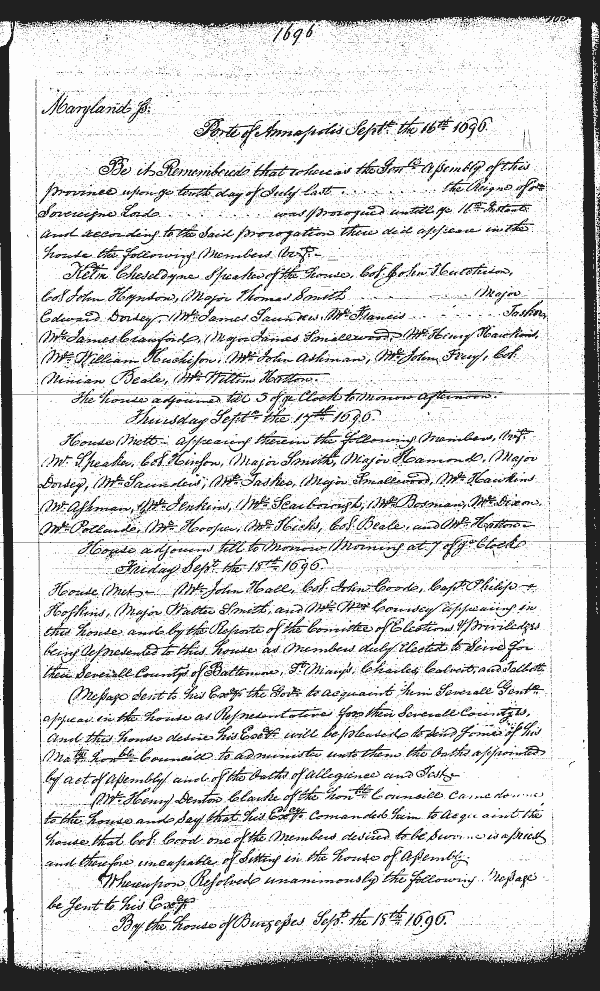 1696
Maryland ss:
Porte of Annapolis Sept.r the 16th 1696.
Be it Remembered that whereas the Gen.ll Assembly of this
province upon ye tenth day of July last . . . . . . . the Reigne of our
Sovereigne Lord . . . . . . . was prorogued untill ye 16th Instant
and according to the said prorogation there did appeare in the
house the following Members Viz.t
Kelm Cheseldyne Speaker of the house, Col. John Hutchison,
Col. John Hynson, Major Thomas Smith . . . . . . . Major
Edward Dorsey, Mr. James Saunders, Mr. Francis . . . . . . .
Mr. James Crawford, Major James Smallwood, Mr. Henry Hawkins,
Mr. William Huchison, Mr. John Ashman, Mr. John Col.
Ninian Beale, Mr. Willm Hatton.
The house adjourned till 3 of ye Clock to Morrow afternoon.
Thursday Sept.r the 17th 1696
House Mett appearing therein the following Members, Viz.t
Mr. Speaker, Col. Hinson, Major Smith, Major Hamond, Major
Dorsey, Mr. Saunders, Mr. Tasker, Major Smallwood, Mr. Hawkins
Mr. Ashman, Mr. Jenkins, Mr. Scarborough, Mr. Bosman, Mr. Dixon,
Mr. Pollard, Mr. Hooper, Mr. Hicks, Col. Beale, and Mr. Hatton
House adjourns till to Morrow Morning at 7 of ye Clock
Friday Sept.r the 18th 1696
House Met Mr. John Hall, Col. John Coode, Capt. Philip
Hopkins, Major Walter Smith, and Mr. Wm Coursey appearing in
this house and by the Reporte of the Comittee of Elections & Priviledges
being represented to this house as Members duly Elected to Serve for
their Severall Countys of Baltemore, St. Marys, Charles, Calvert, and Talbott
Message sent to his Excy the Govr. to acquaint him Severall Gentn.
appear in the house as Representatives for their Severall Countyes,
And this house desire his Excy will be pleased to send some of his
Matys hon.ble Councill to administer unto them the Oaths appointed
by act of Assembly and of the Oaths of Allegience and Test
Mr. Henry Denton Clarke of the hon.ble Councill came down
to the house and Say that his Excy Comanded him to acquaint the
house that Col. Cood one of the Members desired to be sworne is a priest
and therefore uncapable of Sitting in the house of Assembly
Whereupon Resolved unanimously the following Message
be sent to his Excy
By the house of Burgesses Sept.r the 18th 1696.